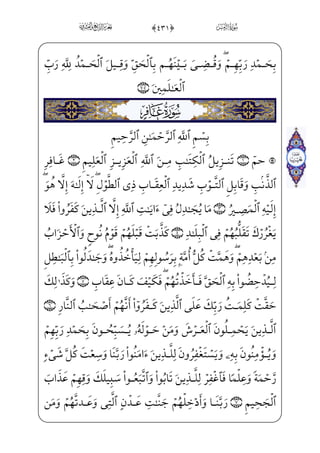 سُورَةُ الزُّمَرِ ﴿٤٣١﴾
بِحَمْدِ رَبِّهِمْ ۖ وَقُضِىَ بَيْنَهُم بِٱلْحَقِّ وَقِيلَ ٱلْحَمْدُ لِلَّهِ رَبِّ
ٱلْعَـٰلَمِينَ
سُورَةُ غَافِرٍ
بِسْمِ ٱللَّهِ ٱلرَّحْمَـٰنِ ٱلرَّحِيمِ
حمٓ ۝ تَنزِيلُ ٱلْكِتَـٰبِ مِنَ ٱللَّهِ ٱلْعَزِيزِ ٱلْعَلِيمِ ۝ غَافِرِ
ٱلذَّنۢبِ وَقَابِلِ ٱلتَّوْبِ شَدِيدِ ٱلْعِقَابِ ذِى ٱلطَّوْلِ ۖ لَآ إِلَـٰهَ إِلَّا هُوَ ۖ
إِلَيْهِ ٱلْمَصِيرُ ۝ مَا يُجَـٰدِلُ فِىٓ ءَايَـٰتِ ٱللَّهِ إِلَّا ٱلَّذِينَ كَفَرُوا۟ فَلَا
يَغْرُرْكَ تَقَلُّبُهُمْ فِى ٱلْبِلَـٰدِ ۝ كَذَّبَتْ قَبْلَهُمْ قَوْمُ نُوحٍ وَٱلْأَحْزَابُ
مِنۢ بَعْدِهِمْ ۖ وَهَمَّتْ كُلُّ أُمَّةٍۭ بِرَسُولِهِمْ لِيَأْخُذُوهُ ۖ وَجَـٰدَلُوا۟ بِٱلْبَـٰطِلِ
لِيُدْحِضُوا۟ بِهِ ٱلْحَقَّ فَأَخَذْتُهُمْ ۖ فَكَيْفَ كَانَ عِقَابِ ۝ وَكَذَٰلِكَ
حَقَّتْ كَلِمَتُ رَبِّكَ عَلَى ٱلَّذِينَ كَفَرُوٓا۟ أَنَّهُمْ أَصْحَـٰبُ ٱلنَّارِ ۝
ٱلَّذِينَ يَحْمِلُونَ ٱلْعَرْشَ وَمَنْ حَوْلَهُۥ يُسَبِّحُونَ بِحَمْدِ رَبِّهِمْ
وَيُؤْمِنُونَ بِهِۦ وَيَسْتَغْفِرُونَ لِلَّذِينَ ءَامَنُوا۟ رَبَّنَا وَسِعْتَ كُلَّ شَىْءٍ
رَّحْمَةً وَعِلْمًا فَٱغْفِرْ لِلَّذِينَ تَابُوا۟ وَٱتَّبَعُوا۟ سَبِيلَكَ وَقِهِمْ عَذَابَ
ٱلْجَحِيمِ ۝ رَبَّنَا وَأَدْخِلْهُمْ جَنَّـٰتِ عَدْنٍ ٱلَّتِى وَعَدتَّهُمْ وَمَن